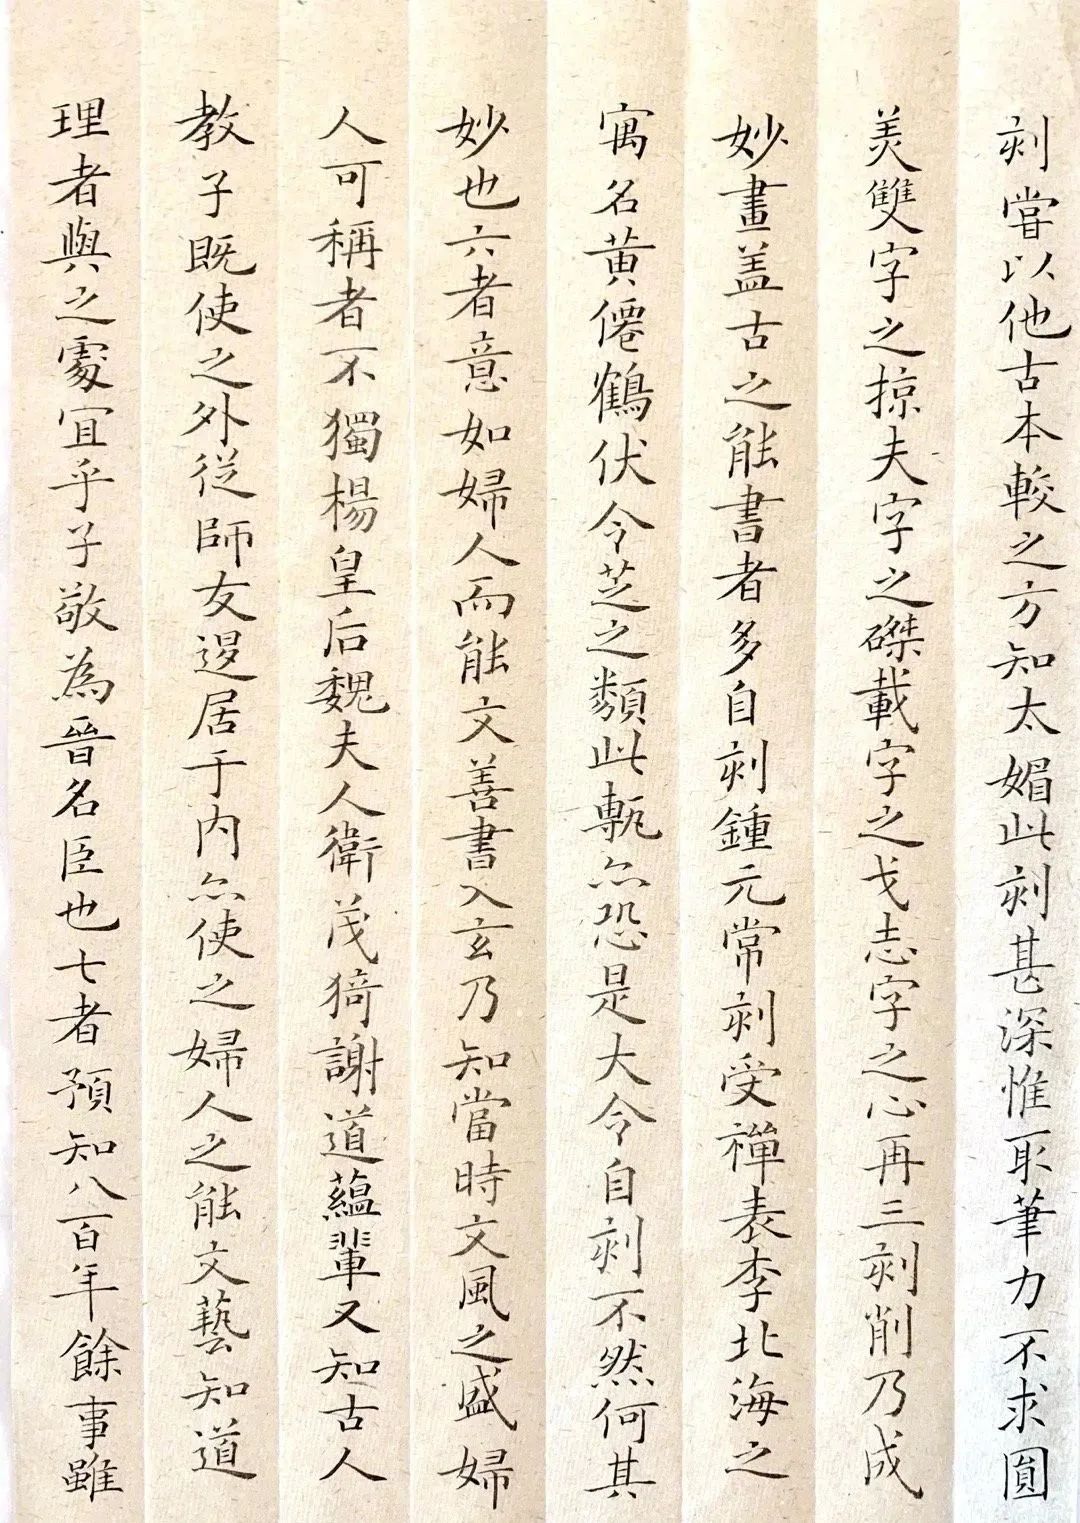 刻嘗以他古本較之方知太媚此刻甚深惟取筆力不求圓
美雙字之掠夫字之磔載字之戈志字之心再三刻削乃成
妙畫盖古之能書者多自刻鍾元常刻受禪表李北海之
寓名黄僊鶴伏令芝之類此甎亦恐是大令自刻不然何其
妙也六者意如婦人而能文善書入玄乃知當時文風之盛婦
人可稱者不獨楊皇后魏夫人衛茂猗謝道藴輩又知古人
教子既使之外從師友逻居于内亦使之婦人之能文藝知道
理者與之處宜乎子敬為晉名臣也七者預知八百年餘事雖